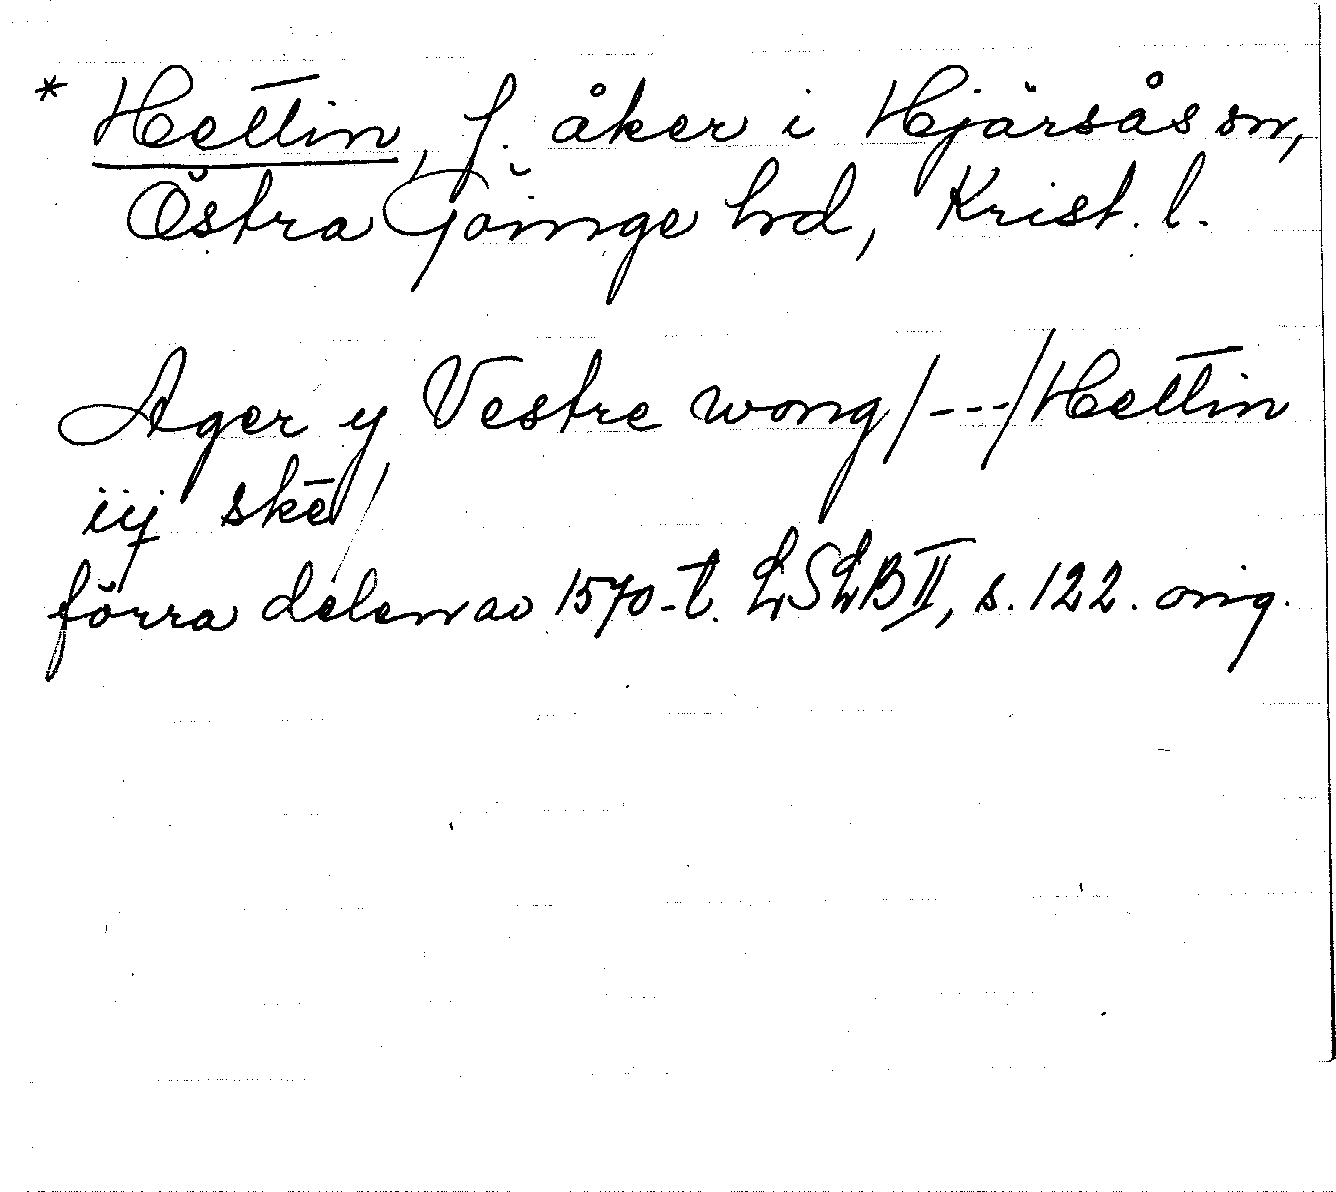 * Hettin, f. åker i Hjärsås sn,
Östra Göinge hd, Krist. l.
Ager y Vestre wong /---/ Hettin
iij skē /
förra delen av 1570-t. LSLB II, s. 122. orig.